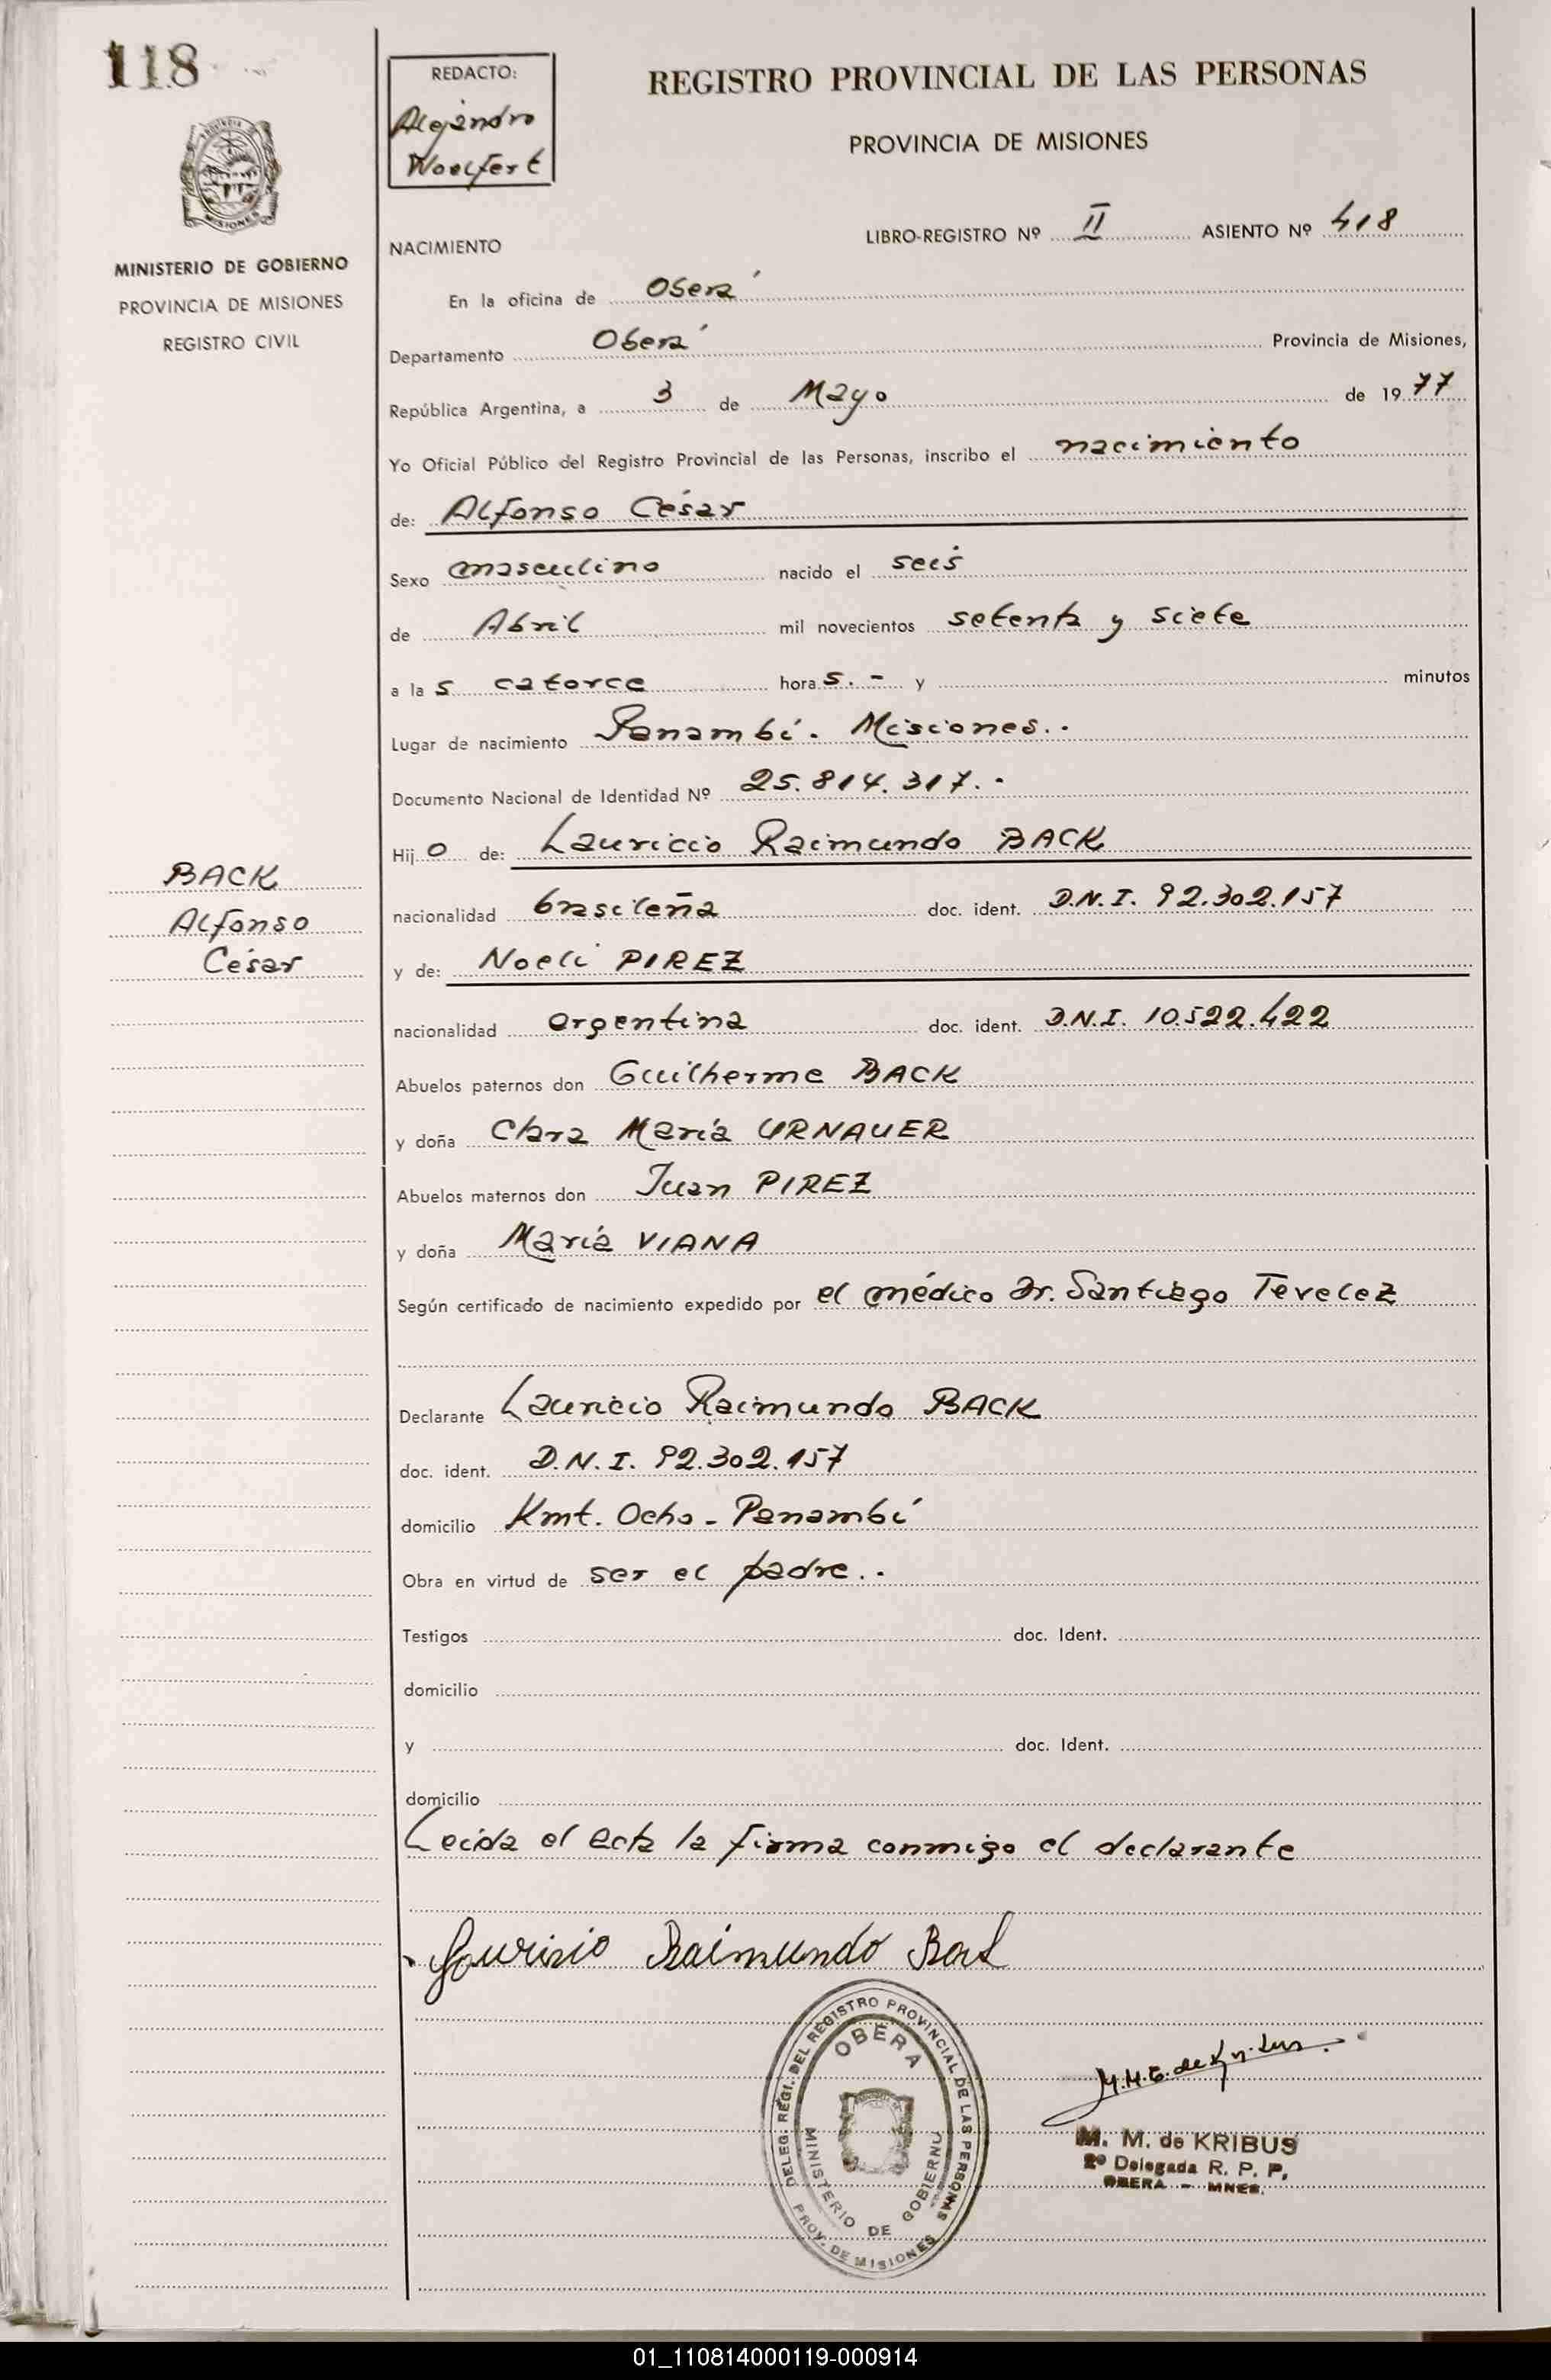 118
REDACTO:
Alejandro
Woelfert
REGISTRO PROVINCIAL DE LAS PERSONAS
PROVINCIA DE MISIONES
MINISTERIO DE GOBIERNO
PROVINCIA DE MISIONES
REGISTRO CIVIL
LIBRO-REGISTRO Nº II ASIENTO Nº 418
NACIMIENTO
En la oficina de Oberá
Departamento Oberá Provincia de Misiones,
República Argentina, a 3 de Mayo de 1977
Yo Oficial Público del Registro Provincial de las Personas, inscribo el nacimiento
de: Alfonso César
Sexo masculino nacido el seis
de Abril mil novecientos setenta y siete
a las catorce horas.- y minutos
Lugar de nacimiento Panambí. Misiones..
Documento Nacional de Identidad Nº 25.814.317.-
Hijo de: Lauricio Raimundo BACK
BACK
Alfonso
César
nacionalidad brasileña doc. ident. D.N.I. 92.302.157
y de: Noeli PIREZ
nacionalidad argentina doc. ident. D.N.I. 10.522.422
Abuelos paternos don Guilherme BACK
y doña Clara María URNAUER
Abuelos maternos don Juan PIREZ
y doña María VIANA
Según certificado de nacimiento expedido por el médico Dr. Santiago Tevelez
Declarante Lauricio Raimundo BACK
doc. ident. D.N.I. 92.302.157
domicilio Kmt. Ocho - Panambí
Obra en virtud de ser el padre..
Testigos doc. Ident.
domicilio
y doc. Ident.
domicilio
Leída el acta la firma conmigo el declarante
Raimundo
DELEG. REGI. DEL REGISTRO PROVINCIAL DE LAS PERSONAS
OBERA
MINISTERIO DE GOBIERNO
PROV. DE MISIONES
M. M. de KRIBUS
2º Delegada R. P. P.
OBERA - MNES.
01_110814000119-000914